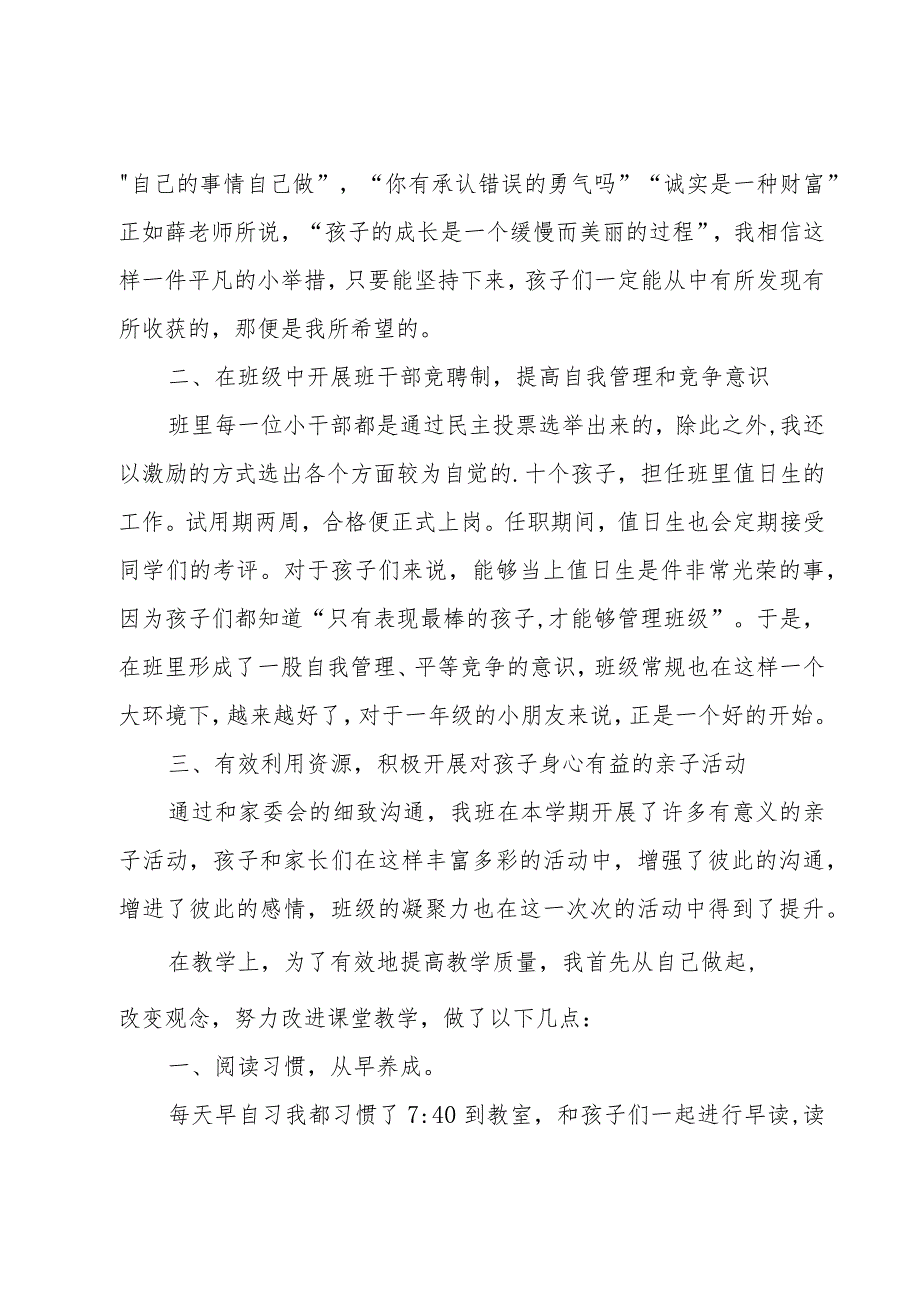 "自己的事情自己做”，“你有承认错误的勇气吗”“诚实是一种财富”
正如薛老师所说，“孩子的成长是一个缓慢而美丽的过程”，我相信这
样一件平凡的小举措，只要能坚持下来，孩子们一定能从中有所发现有
所收获的，那便是我所希望的。
二、在班级中开展班干部竞聘制，提高自我管理和竞争意识
班里每一位小干部都是通过民主投票选举出来的，除此之外,我还
以激励的方式选出各个方面较为自觉的.十个孩子，担任班里值日生的
工作。试用期两周，合格便正式上岗。任职期间，值日生也会定期接受
同学们的考评。对于孩子们来说，能够当上值日生是件非常光荣的事，
因为孩子们都知道“只有表现最棒的孩子,才能够管理班级”。于是，
在班里形成了一股自我管理、平等竞争的意识，班级常规也在这样一个
大环境下，越来越好了，对于一年级的小朋友来说，正是一个好的开始。
三、有效利用资源，积极开展对孩子身心有益的亲子活动
通过和家委会的细致沟通，我班在本学期开展了许多有意义的亲
子活动，孩子和家长们在这样丰富多彩的活动中，增强了彼此的沟通，
增进了彼此的感情，班级的凝聚力也在这一次次的活动中得到了提升。
在教学上，为了有效地提高教学质量，我首先从自己做起，
改变观念，努力改进课堂教学，做了以下几点：
一、阅读习惯，从早养成。
每天早自习我都习惯了 7:40 到教室，和孩子们一起进行早读,读